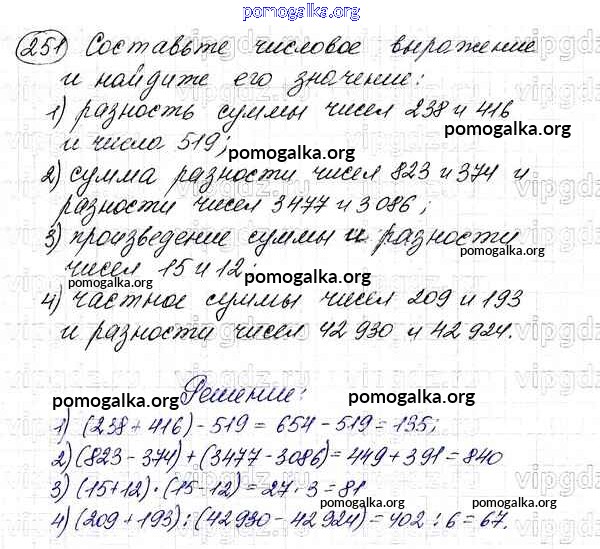 pomogalka.org
251 Составьте числовое выражение
и найдите его значение:
1) разность суммы чисел 238 и 416
pomogalka.org
и числа 519;
pomogalka.org
2) сумма разности чисел 823 и 374 и
разности чисел 3477 и 3086;
pomogalka.org
3) произведение суммы и разности
pomogalka.org
чисел 15 и 12;
pomogalka.org
4) частное суммы чисел 209 и 193
и разности чисел 42930 и 42924.
pomogalka.org
Решение:
pomogalka.org
pomogalka.org
1) (238+416)-519=654-519=135;
2) (823-374)+(3477-3086)=449+391=840
3) (15+12)·(15-12)=27·3=81
pomogalka.org
pomogalka.org
4) (209+193):(42930-42924)=402:6=67.